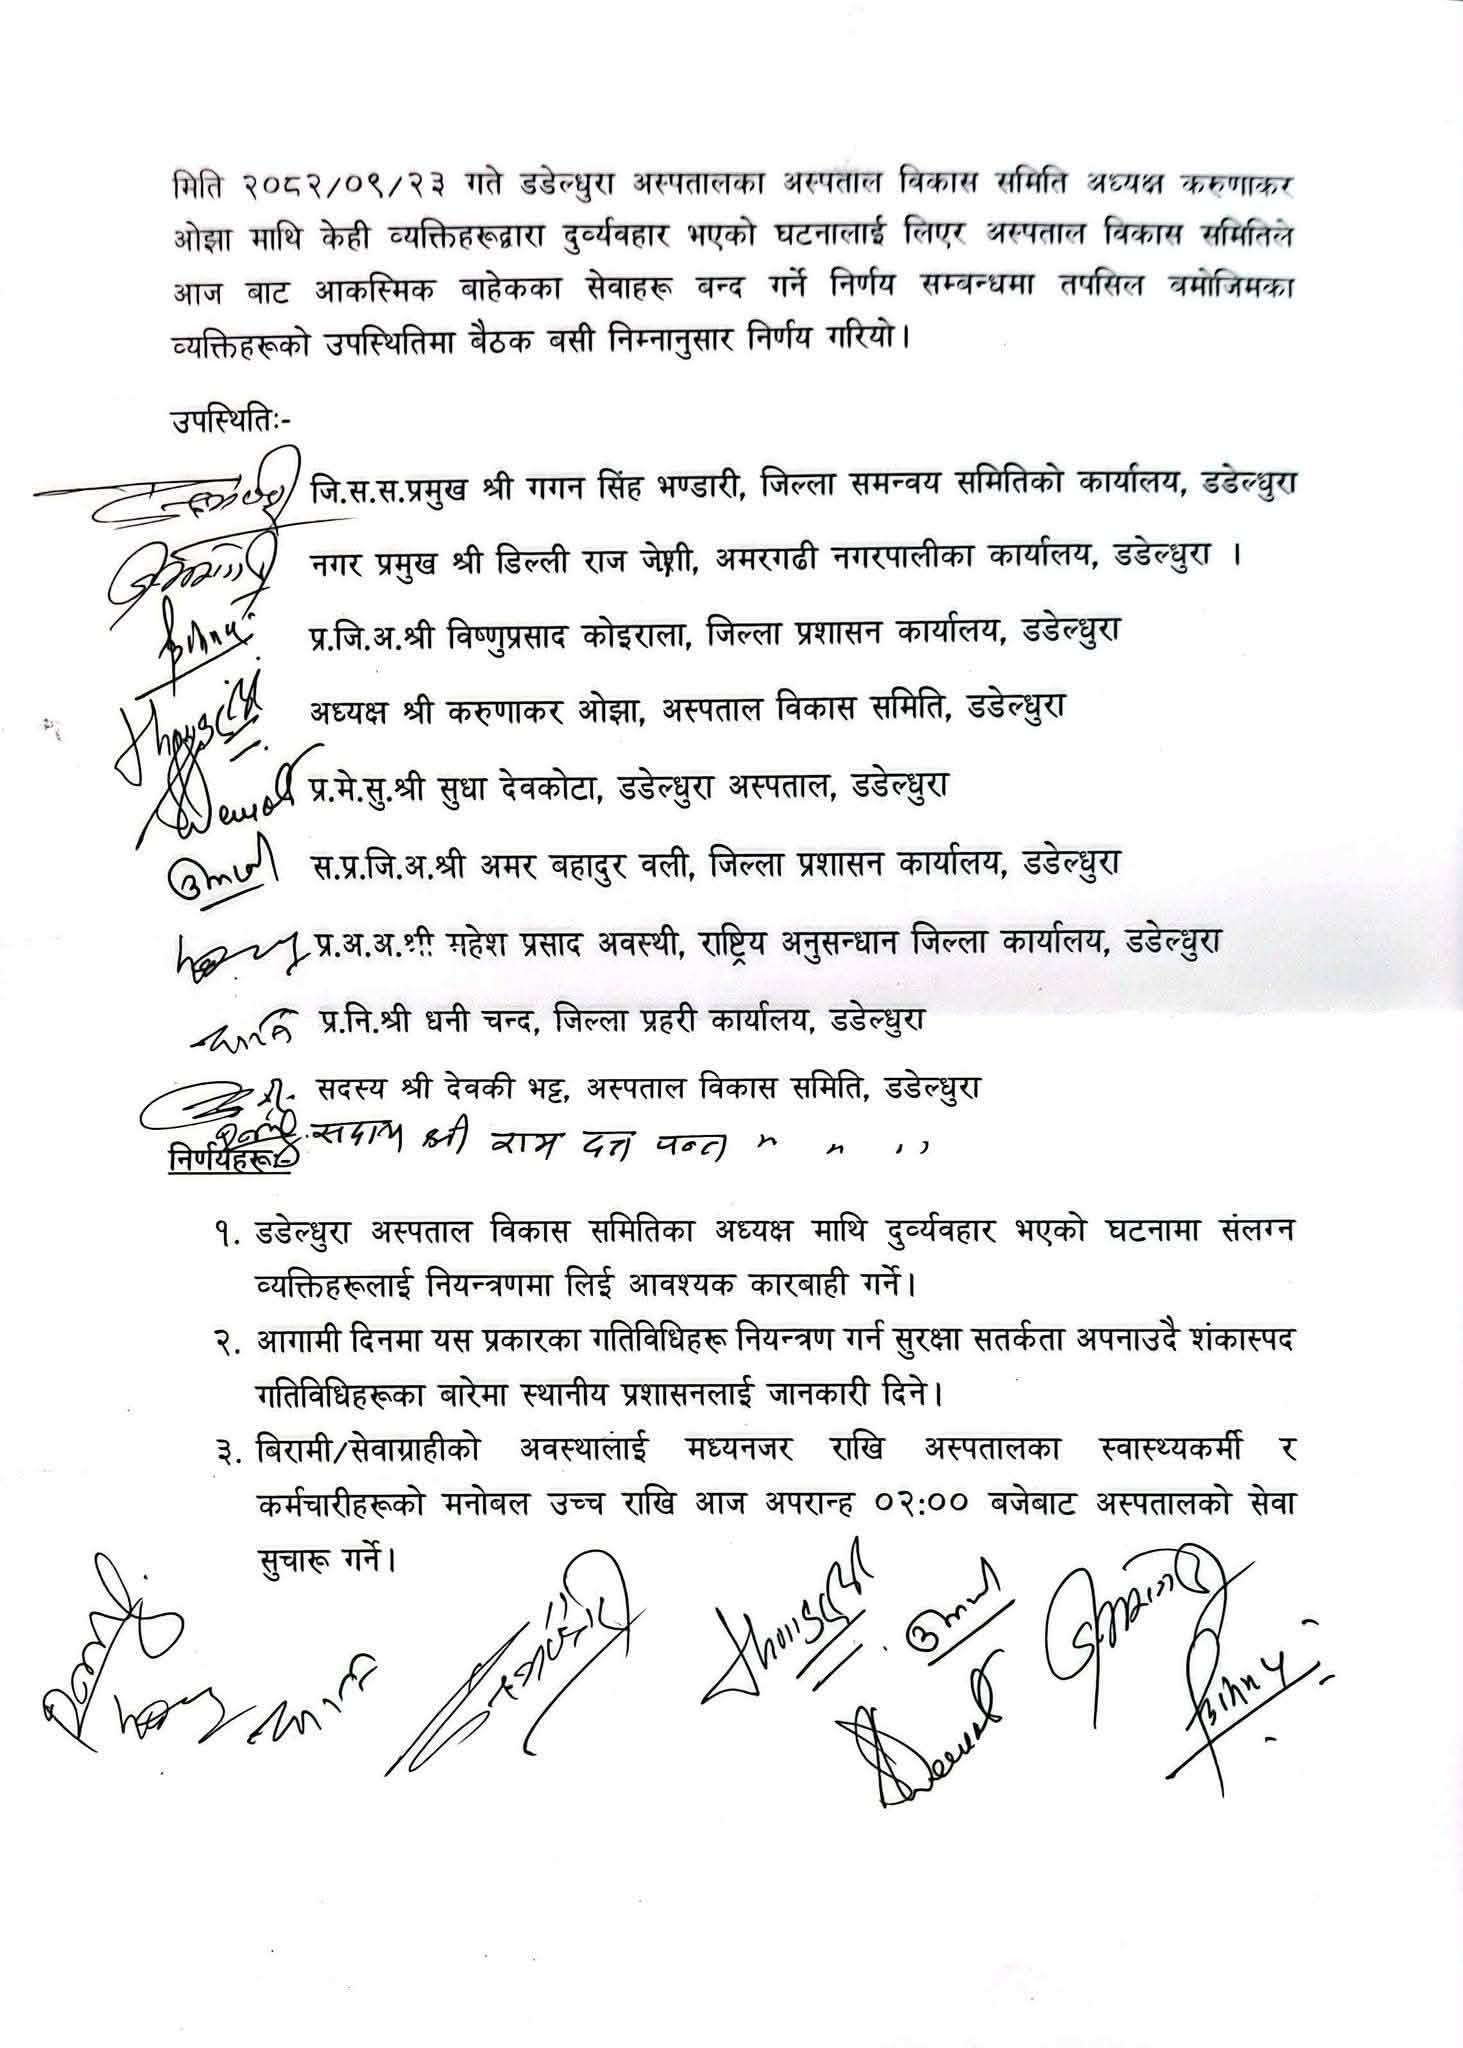 मिति २०८२/०९/२३ गते डडेल्धुरा अस्पतालका अस्पताल विकास समिति अध्यक्ष करुणाकर
ओझा माथि केही व्यक्तिहरूद्वारा दुर्व्यवहार भएको घटनालाई लिएर अस्पताल विकास समितिले
आज बाट आकस्मिक बाहेकका सेवाहरू बन्द गर्ने निर्णय सम्बन्धमा तपसिल बमोजिमका
व्यक्तिहरूको उपस्थितिमा बैठक बसी निम्नानुसार निर्णय गरियो।
उपस्थितिः-
जि.स.स.प्रमुख श्री गगन सिंह भण्डारी, जिल्ला समन्वय समितिको कार्यालय, डडेल्धुरा
नगर प्रमुख श्री डिल्ली राज जेशी, अमरगढी नगरपालीका कार्यालय, डडेल्धुरा ।
प्र.जि.अ.श्री विष्णुप्रसाद कोइराला, जिल्ला प्रशासन कार्यालय, डडेल्धुरा
अध्यक्ष श्री करुणाकर ओझा, अस्पताल विकास समिति, डडेल्धुरा
प्र.मे.सु.श्री सुधा देवकोटा, डडेल्धुरा अस्पताल, डडेल्धुरा
स.प्र.जि.अ.श्री अमर बहादुर वली, जिल्ला प्रशासन कार्यालय, डडेल्धुरा
प्र.अ.अ.श्री महेश प्रसाद अवस्थी, राष्ट्रिय अनुसन्धान जिल्ला कार्यालय, डडेल्धुरा
प्र.नि.श्री धनी चन्द, जिल्ला प्रहरी कार्यालय, डडेल्धुरा
सदस्य श्री देवकी भट्ट, अस्पताल विकास समिति, डडेल्धुरा
सदस्य श्री राम दत्त पन्त " " ,,
निर्णयहरूः-
१. डडेल्धुरा अस्पताल विकास समितिका अध्यक्ष माथि दुर्व्यवहार भएको घटनामा संलग्न
व्यक्तिहरूलाई नियन्त्रणमा लिई आवश्यक कारबाही गर्ने।
२. आगामी दिनमा यस प्रकारका गतिविधिहरू नियन्त्रण गर्न सुरक्षा सतर्कता अपनाउदै शंकास्पद
गतिविधिहरूका बारेमा स्थानीय प्रशासनलाई जानकारी दिने।
३. बिरामी/सेवाग्राहीको अवस्थालाई मध्यनजर राखि अस्पतालका स्वास्थ्यकर्मी र
कर्मचारीहरूको मनोबल उच्च राखि आज अपरान्ह ०२:०० बजेबाट अस्पतालको सेवा
सुचारू गर्ने।